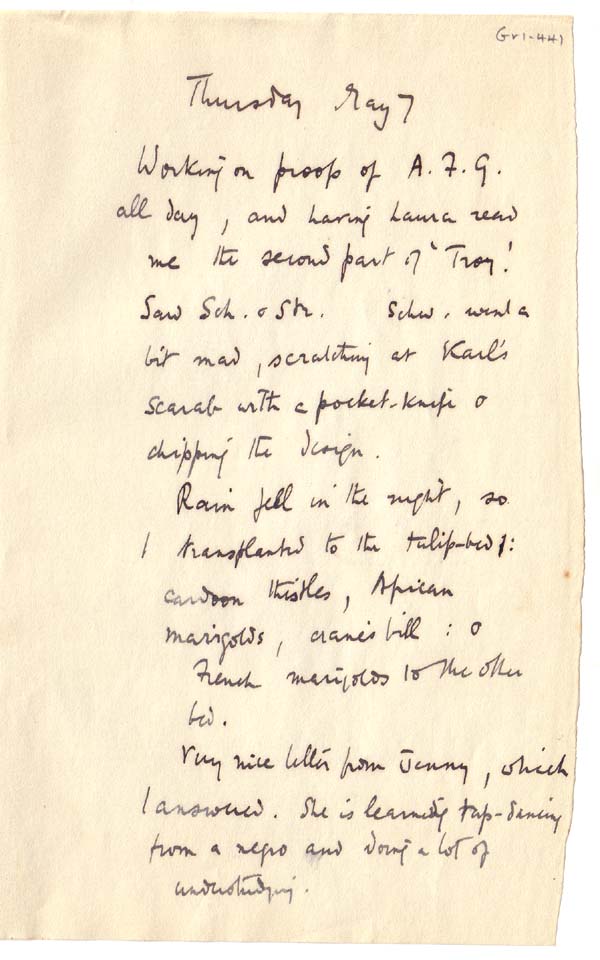 Gr1-441
Thursday May 7
Working on proofs of A. F. G.
all day, and having Laura read
me the second part of 'Troy'.
Saw Sch. & Str. Schw. went a
bit mad, scratching at Karl's
scarab with a pocket-knife &
chipping the design.
Rain fell in the night, so
I transplanted to the tulip-bed:
cardoon thistles, African
marigolds, cranesbill : &
French marigolds to the other
bed.
Very nice letter from Jenny, which
I answered. She is learning tap-dancing
from a negro and doing a lot of
understudying.